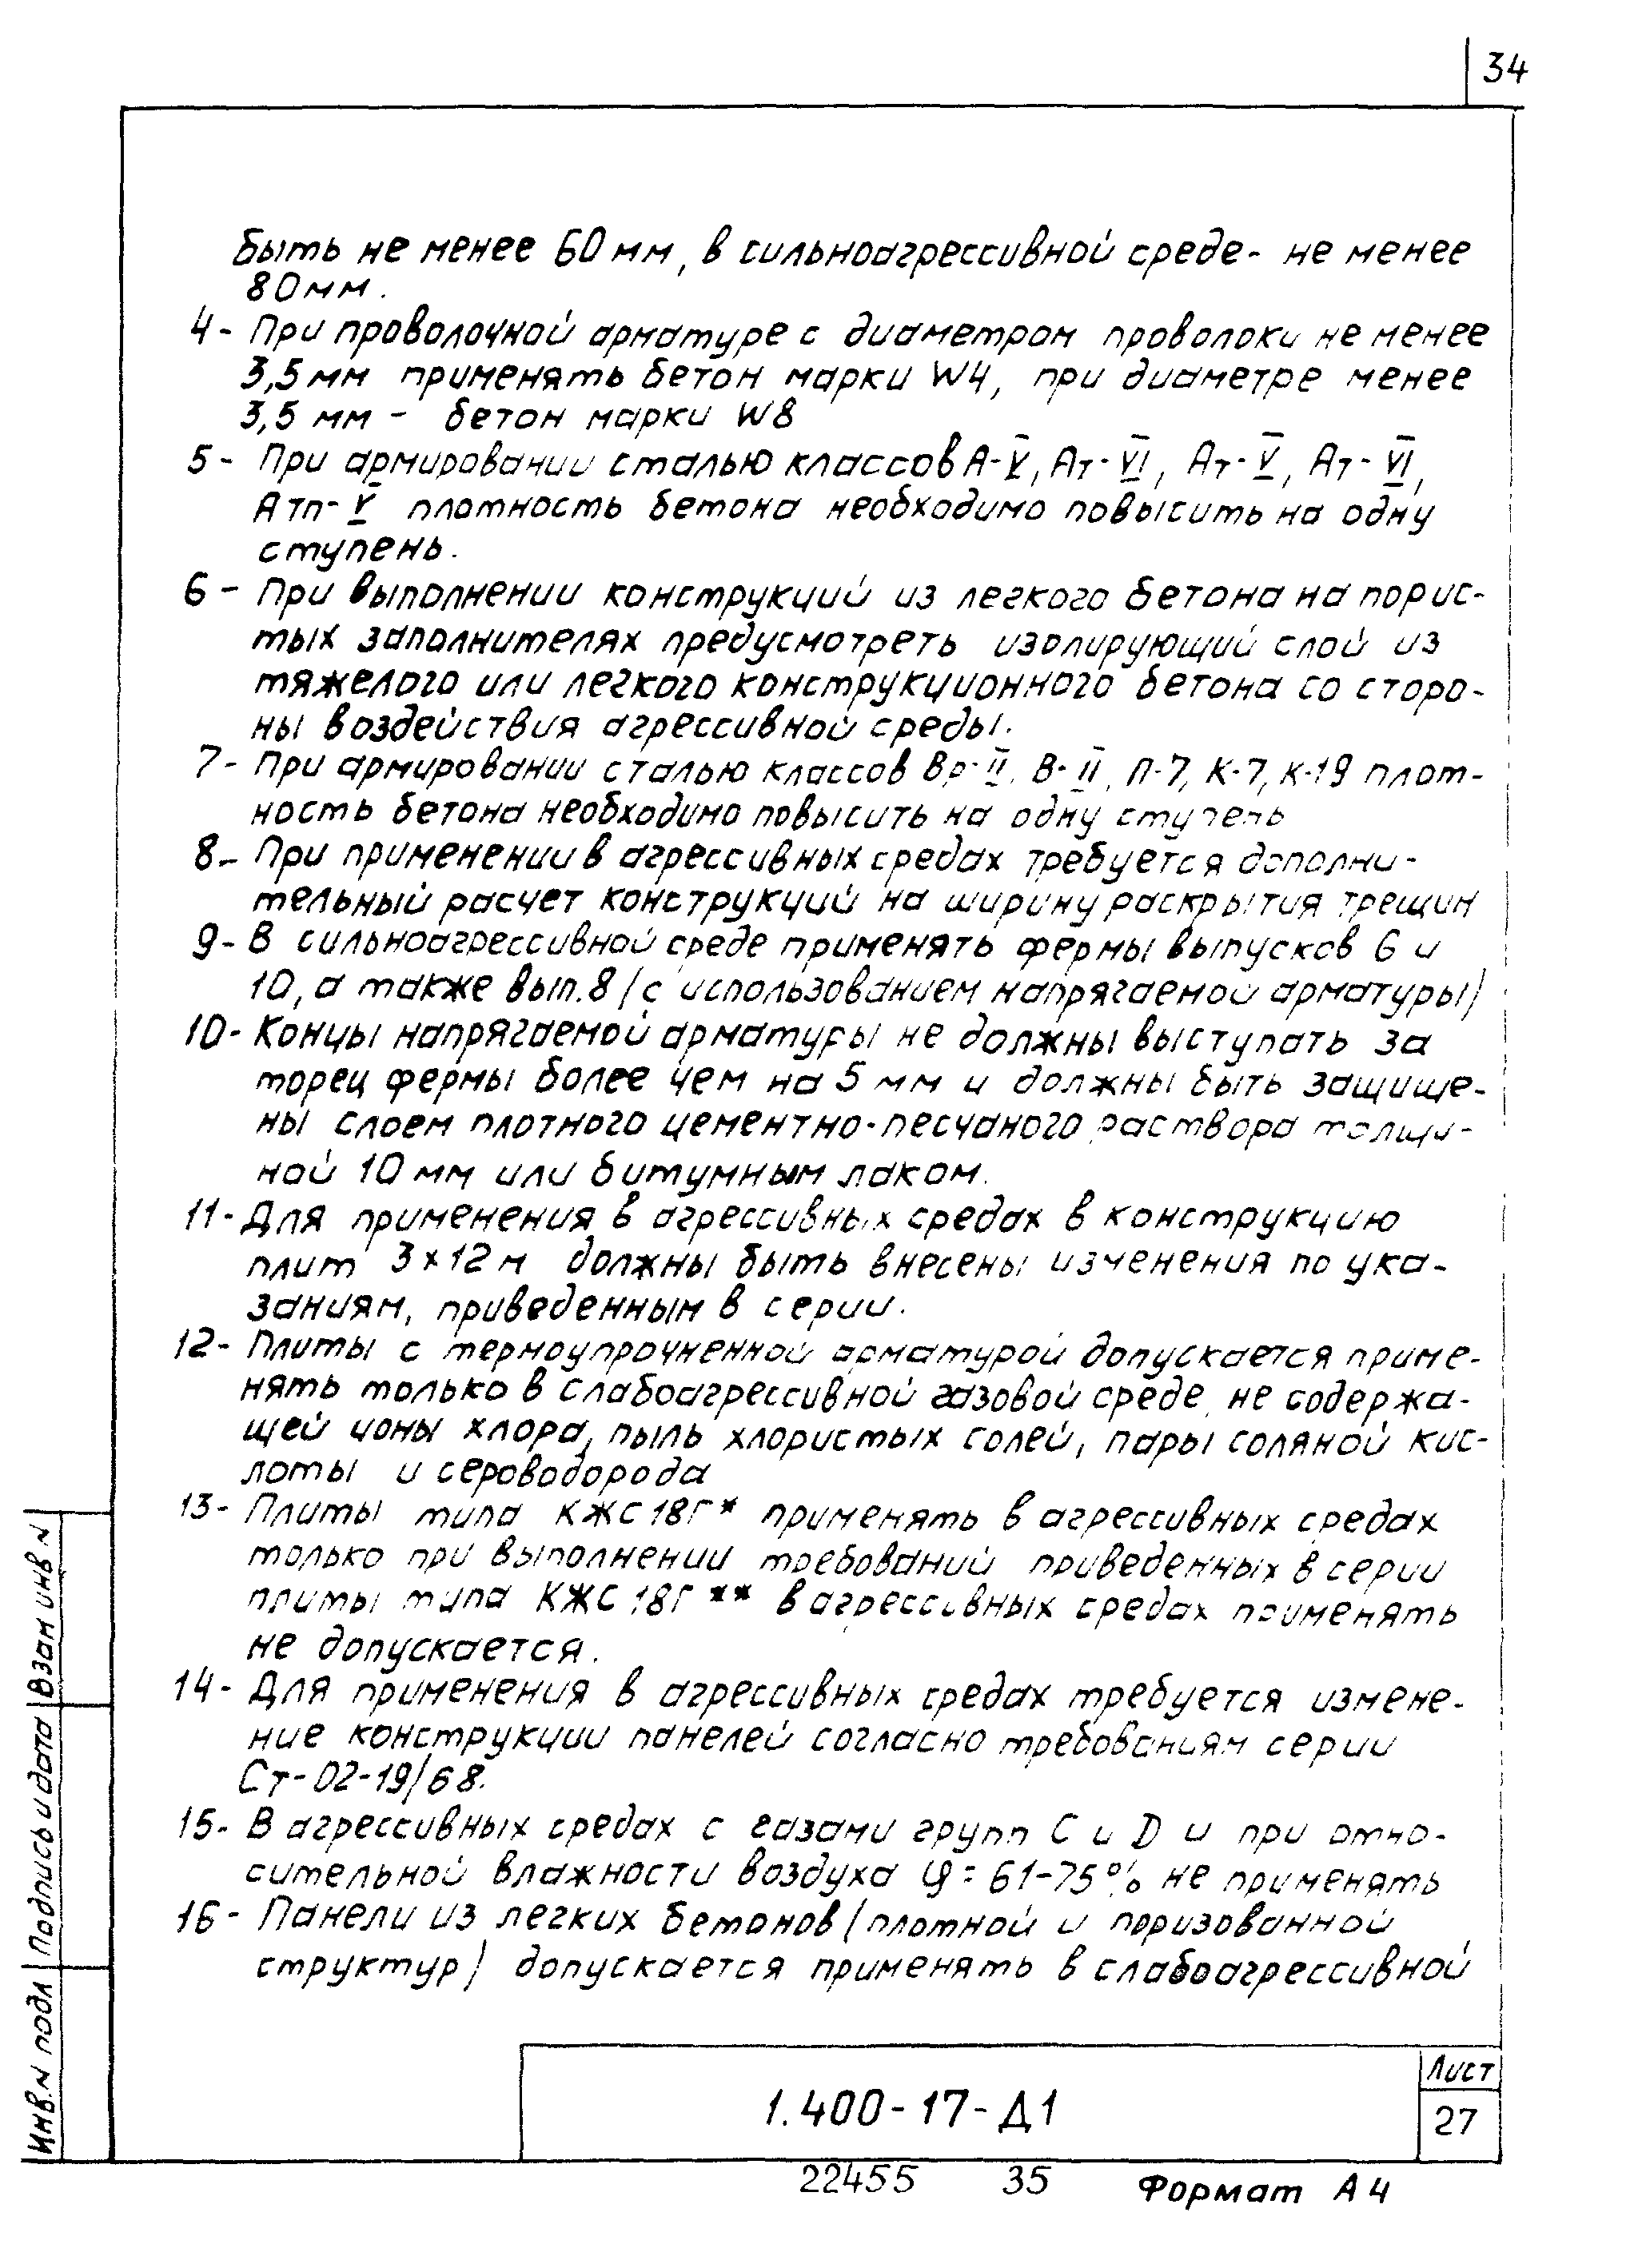 34
быть не менее 60 мм, в сильноагрессивной среде - не менее
80 мм.
4 - При проволочной арматуре с диаметром проволоки не менее
3,5 мм применять бетон марки W4, при диаметре менее
3,5 мм - бетон марки W8
5 - При армировании сталью классов А-V, Ат-VI, Ат-V, Ат-VI,
Атп-V плотность бетона необходимо повысить на одну
ступень.
6 - При выполнении конструкций из легкого бетона на порис-
тых заполнителях предусмотреть изолирующий слой из
тяжелого или легкого конструкционного бетона со сторо-
ны воздействия агрессивной среды.
7 - При армировании сталью классов Вр-II, В-II, П-7, К-7, К-19 плот-
ность бетона необходимо повысить на одну ступень
8 - При применении в агрессивных средах требуется дополни-
тельный расчет конструкций на ширину раскрытия трещин
9 - В сильноагрессивной среде применять фермы выпусков 6 и
10, а также вып. 8 (с использованием напрягаемой арматуры)
10 - Концы напрягаемой арматуры не должны выступать за
торец фермы более чем на 5 мм и должны быть защище-
ны слоем плотного цементно-песчаного раствора толщи-
ной 10 мм или битумным лаком.
11 - Для применения в агрессивных средах в конструкцию
плит 3х12 м должны быть внесены изменения по ука-
заниям, приведенным в серии.
12 - Плиты с термоупрочненной арматурой допускается приме-
нять только в слабоагрессивной газовой среде, не содержа-
щей ионы хлора, пыль хлористых солей, пары соляной кис-
лоты и сероводорода
13 - Плиты типа КЖС 18Г* применять в агрессивных средах
только при выполнении требований приведенных в серии
плиты типа КЖС 18Г ** в агрессивных средах применять
не допускается.
14 - Для применения в агрессивных средах требуется измене-
ние конструкции панелей согласно требованиям серии
Ст-02-19/68.
15 - В агрессивных средах с газами групп С и D и при отно-
сительной влажности воздуха φ = 61-75% не применять
16 - Панели из легких бетонов (плотной и поризованной
структур) допускается применять в слабоагрессивной
Взам инв N
Подпись и дата
Инв. N подл
1.400-17-Д1
Лист
27
22455 35 Формат А4